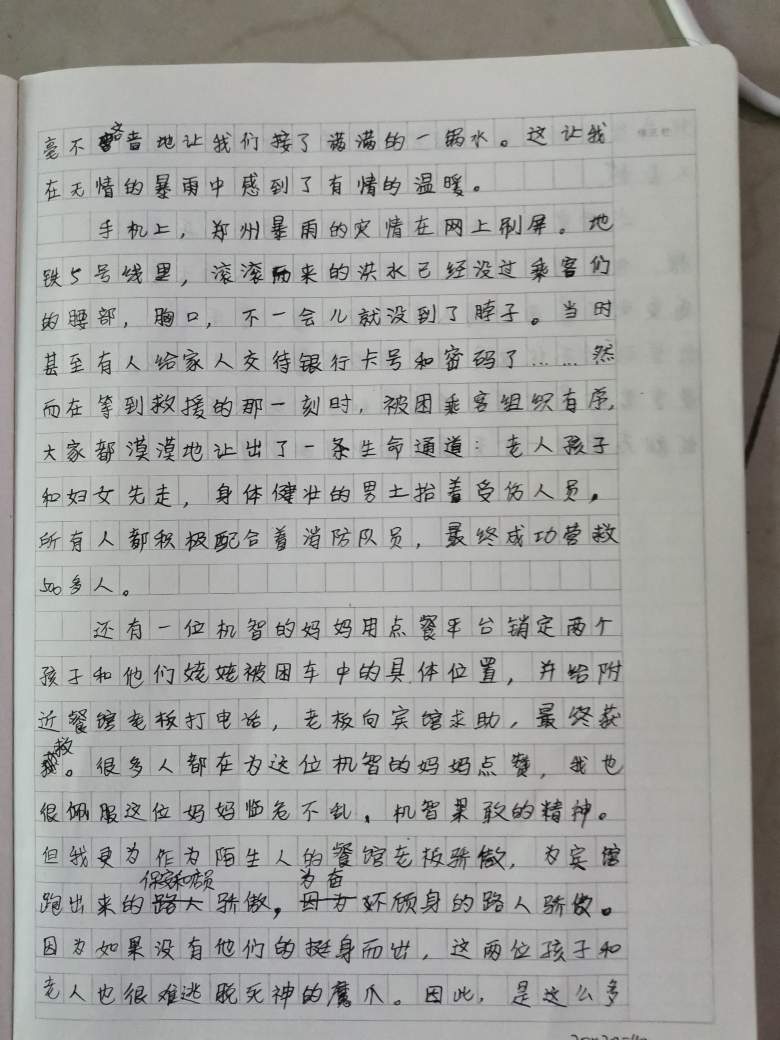 毫不吝啬地让我们接了满满的一锅水。这让我
在无情的暴雨中感到了有情的温暖。
手机上，郑州暴雨的灾情在网上刷屏。地
铁5号线里，滚滚而来的洪水已经没过乘客们
的腰部，胸口，不一会儿就没到了脖子。当时
甚至有人给家人交待银行卡号和密码了……然
而在等到救援的那一刻时，被困乘客组织有序，
大家都漠漠地让出了一条生命通道：老人孩子
和妇女先走，身体健壮的男士抬着受伤人员，
所有人都积极配合着消防队员，最终成功营救
500多人。
还有一位机智的妈妈用点餐平台销定两个
孩子和他们姥姥被困车中的具体位置，并给附
近餐馆老板打电话，老板向宾馆求助，最终获
救。很多人都在为这位机智的妈妈点赞，我也
很佩服这位妈妈临危不乱，机智果敢的精神。
但我更为作为陌生人的餐馆老板骄傲，为宾馆
跑出来的保安和店员骄傲，为奋不顾身的路人骄傲。
因为如果没有他们的挺身而出，这两位孩子和
老人也很难逃脱死神的魔爪。因此，是这么多